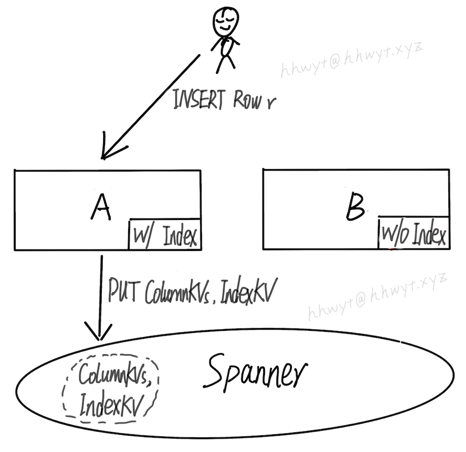 hhwyt@hhwyt.xyz
INSERT Row r
A
w/ Index
B
w/o Index
PUT ColumnKVs, IndexKV
hhwyt@hhwyt.xyz
ColumnKVs,
IndexKV
Spanner